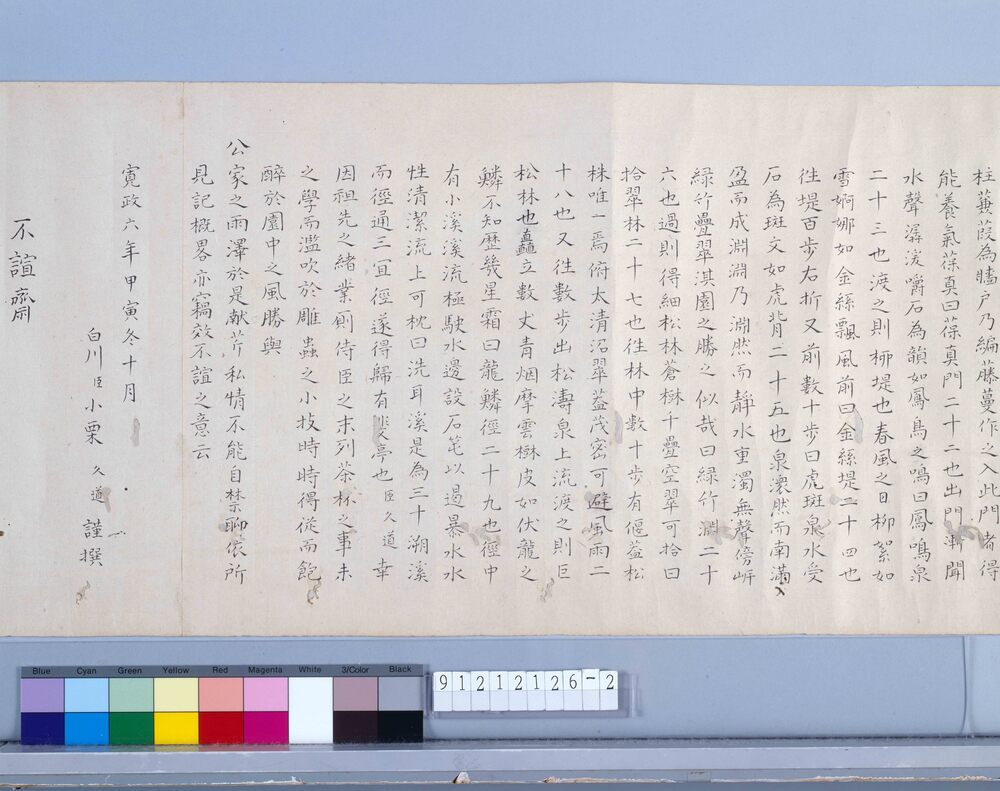 柱蒹葭為牆戸乃編藤蔓作之入此門者得
能養氣葆真曰葆真門二十二也出門漸聞
水聲潺湲嚼石為韻如鳳鳥之鳴曰鳳鳴泉
二十三也渡之則柳堤也春風之日柳絮如
雪婀娜如金絲飄風前曰金絲堤二十四也
徃堤百歩右折又前數十歩曰虎斑泉水受
石為斑文如虎背二十五也泉瀤然而南滿
盈而成淵淵乃淵然而靜水重濁無聲傍岍
緑竹疊翠淇園之勝之似哉曰緑竹淵二十
六也過則得細松林蒼樾千疊空翠可拾曰
拾翠林二十七也徃林中數十歩有偃葢松
株唯一焉俯太清沼翠葢茂密可避風雨二
十八也又徃數歩出松濤泉上流渡之則巨
松林也矗立數丈青烟摩雲樾皮如伏龍之
鱗不知歴幾星霜曰龍鱗徑二十九也徑中
有小溪溪流極駛水邊設石笔以遏暴水水
性清潔流上可枕曰洗耳溪是為三十溯溪
而徑通三冝徑遂得歸有斐亭也臣久道幸
因祖先之緒業廁侍臣之末列茶杯之事未
之學而濫吹於雕蟲之小技時時得從而飽
醉於園中之風勝與
公家之雨澤於是献芹私情不能自禁聊依所
見記概畧亦竊效不諠之意云
寛政六年甲寅冬十月
白川臣小栗久道謹撰
不諠齋
Blue Cyan Green Yellow Red Magenta White 3/Color Black
91212126-2